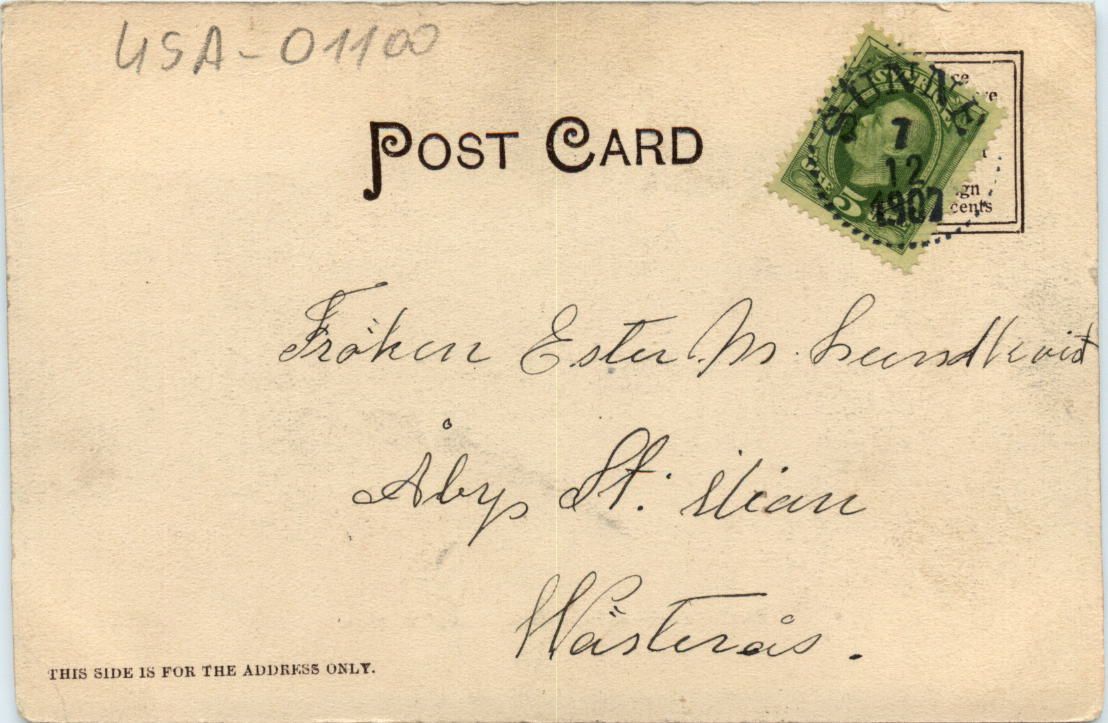 USA-01100
POST CARD
SUNNE
7
12
1907
5
gn
cents
Fröken Ester M. Lundkvist
Åby St. Ilian
Wästerås.
THIS SIDE IS FOR THE ADDRESS ONLY.